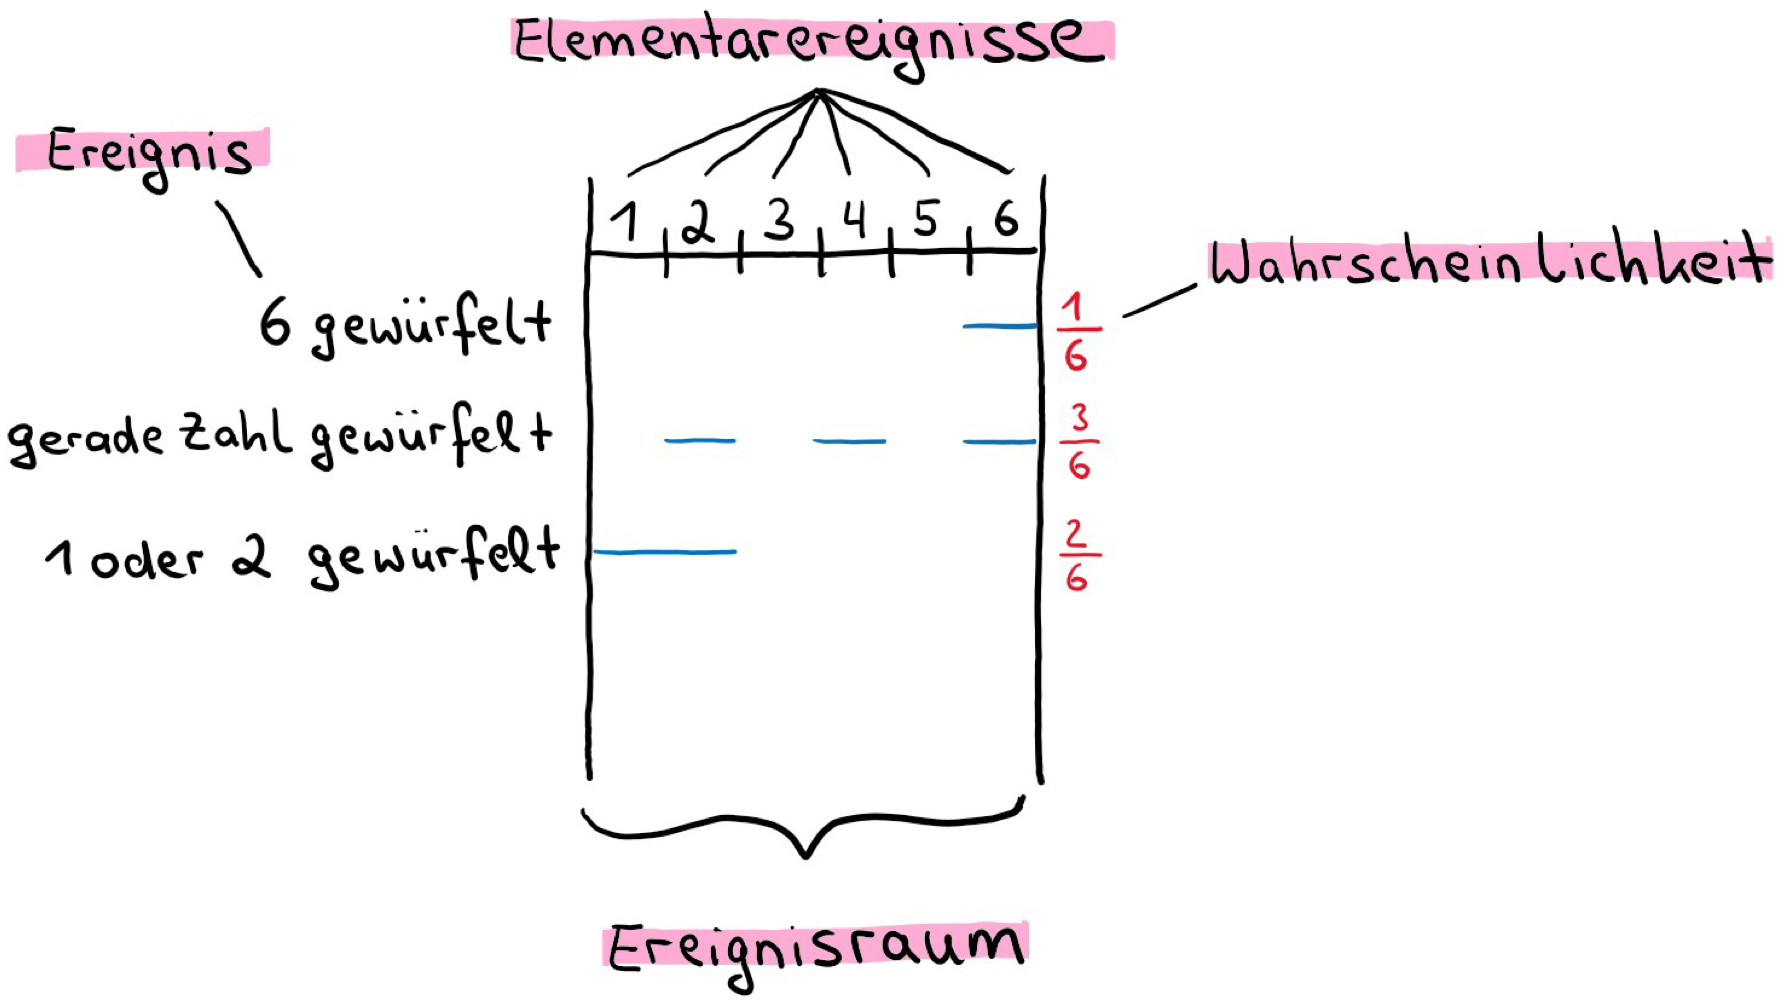 Elementarereignisse
Ereignis
1 2 3 4 5 6
Wahrscheinlichkeit
6 gewürfelt 1/6
gerade Zahl gewürfelt 3/6
1 oder 2 gewürfelt 2/6
Ereignisraum